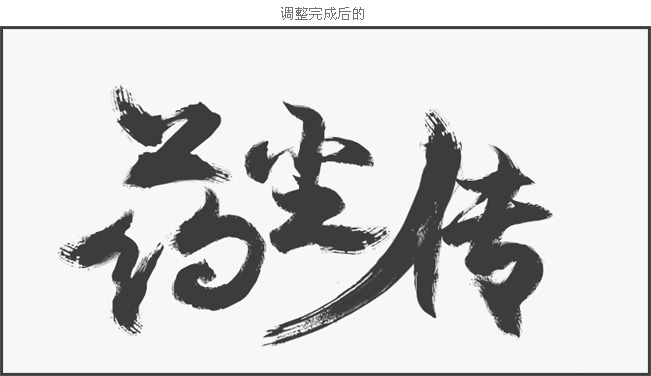 调整完成后的
药尘传